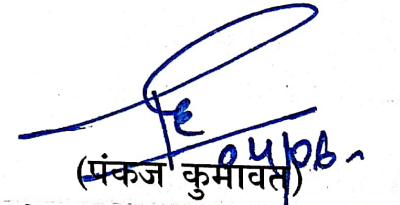 04/06
(पंकज कुमावत)